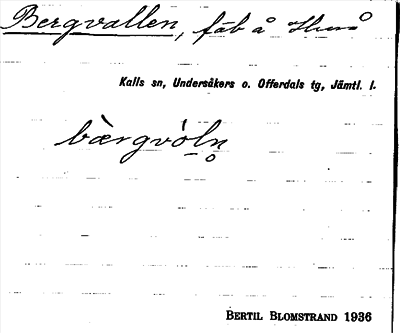 Bergvallen, fäb å Huså
Kalls sn, Undersåkers o. Offerdals tg, Jämtl. l.
bàrgvóln̥
BERTIL BLOMSTRAND 1936